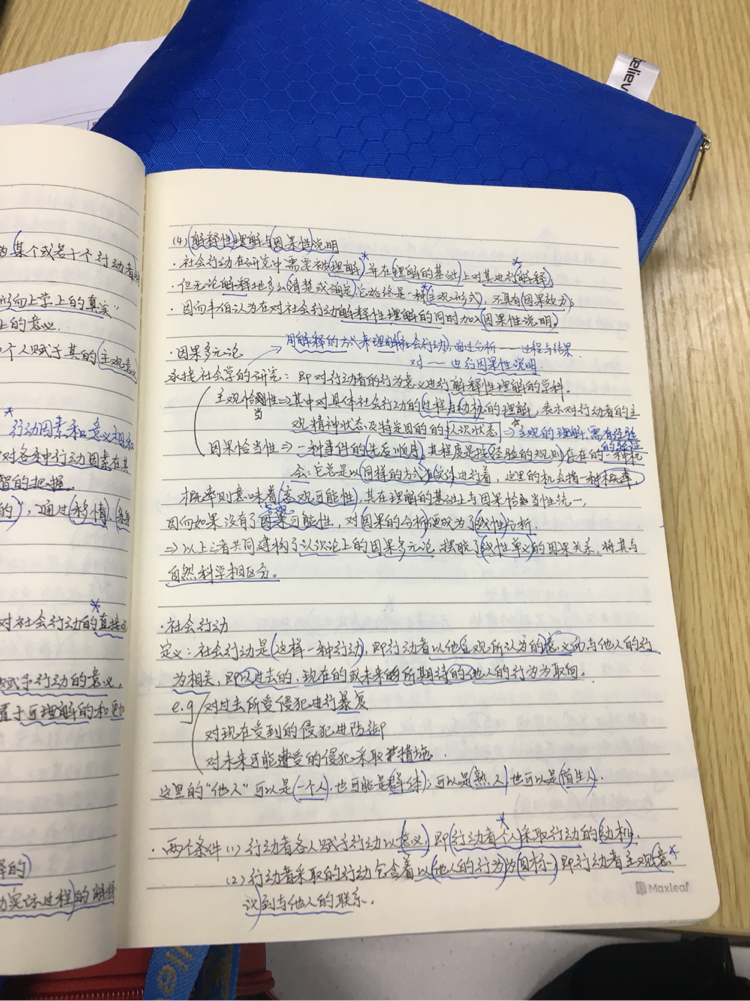 ellev
为某个或若干个行动者
形而上学上的真实”
上的意义.
个人赋予其的主观意义
*行动因素和意义相联
对各种行动因素在其
的把握.
的), 通过(移情)
对社会行动的直接
赋予行动的意义,
置于可理解的和更
的)
过程)的解释
(4)(解释性)理解与(因果性)说明
·社会行动在研究中需要被(理解)*, 并在(理解的基础)上对其进行(解释)*
·但无论解释地多么清楚或确定, 它始终是一种(主观形式), 不具有(因果效力)
·因而韦伯认为在对社会行动解释性理解的同时加以(因果性说明)
·因果多元论 → 用解释的方式来理解(社会行动), 通过分析 —— 过程与结果
对 —— 进行因果性说明.
承接社会学的研究: 即对行动者的行为意义进行解释性理解的学科.
主观恰当性⇒其中对具体社会行动的(过程与动机)的理解, 表示对行动者的主
观精神状态及特定目的的(认次状态)⇒主观的理解, 需有经验
的
因果恰当性⇒一种事件的(先后顺序), 其程度是按(经验的规则)存在的一种机
会, 它总是以(同样的方式)进行着, 这里的机会指一种概率
概率则意味着(客观可能性), 其在理解的基础上与因果恰当性统一,
因而如果没有了客观可能性, 对(因果的分析)便成为了(线性)分析.
⇒以上三者共同建构了认识论上的因果多元论, 摆脱了(线性单义)的因果关系, 将其与
自然科学相区分。
·社会行动
定义: 社会行动是(这样一种行动), 即行动者以他主观所认为的(意义)而与他人的行
为相关, 即以过去的, 现在的或未来的所期待的他人的行为为取向.
e.g 对过去所受侵犯进行暴复
对现在受到的侵犯进防御
对未来可能遭受的侵犯采取措施.
这里的“他人”可以是(一个人), 也可能是(群体); 可以是(熟人)也可以是(陌生人).
·两个条件(1)行动者各人赋予行动以(意义), 即(行动者个人)*采取行动的(动机).
(2)行动者采取的行动包含着以(他人的行为)为(目标), 即行动者主观(意*
识)到与他人的联系.
Maxleaf
ello